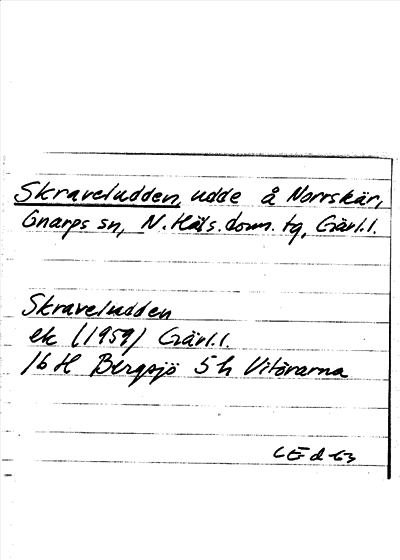 Skraveludden, udde å Norrskär,
Gnarps sn, N. Häls. doms. tg, Gävl. l.
Skraveludden
ek (1959) Gävl. l.
16 H Bergsjö 5 h Vitörarna